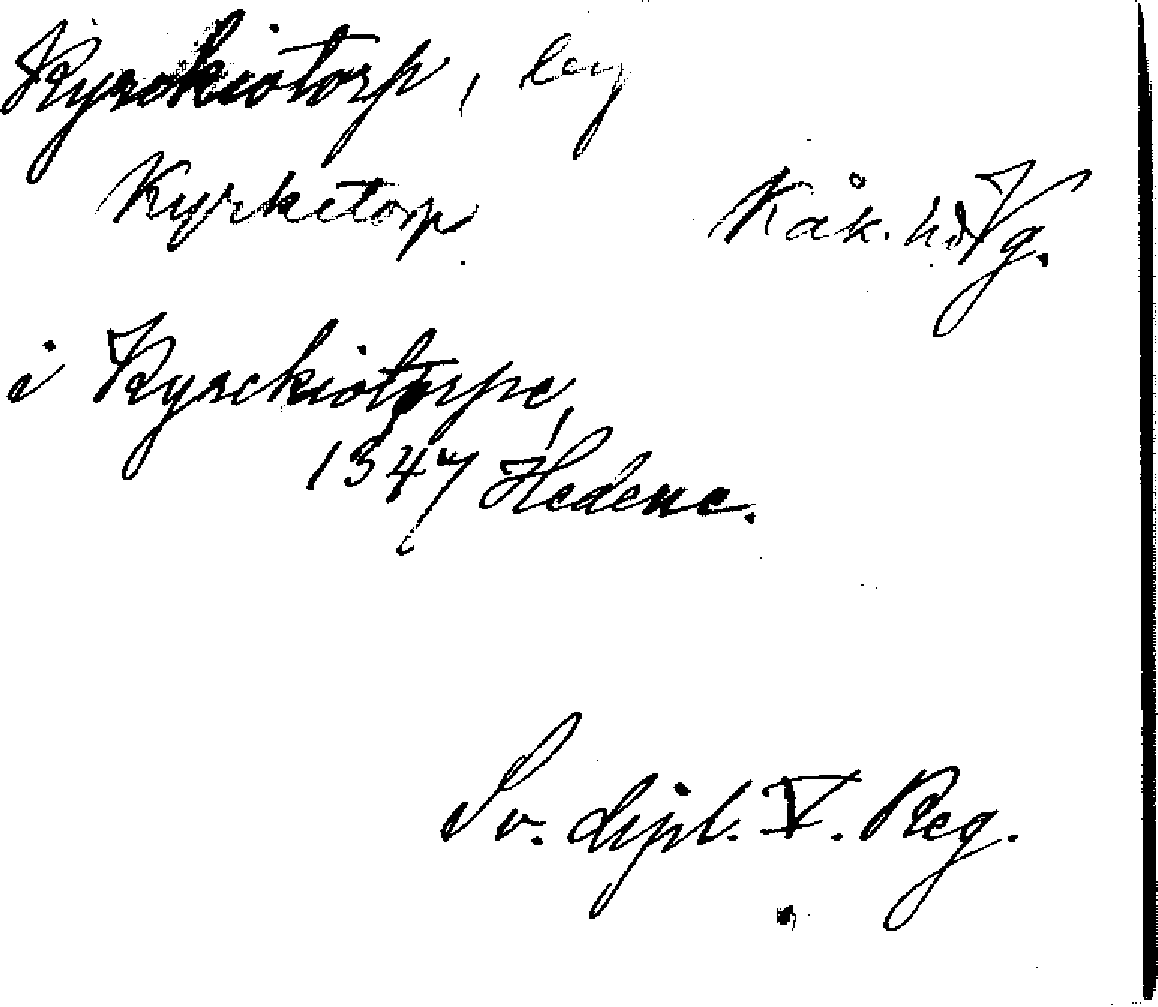 Kyrckiotorp, by
Kyrketorp Kåk. hd Vg.
i Kyrckiotorpe,
1347 Hedene.
Sv. dipl. V. Reg.